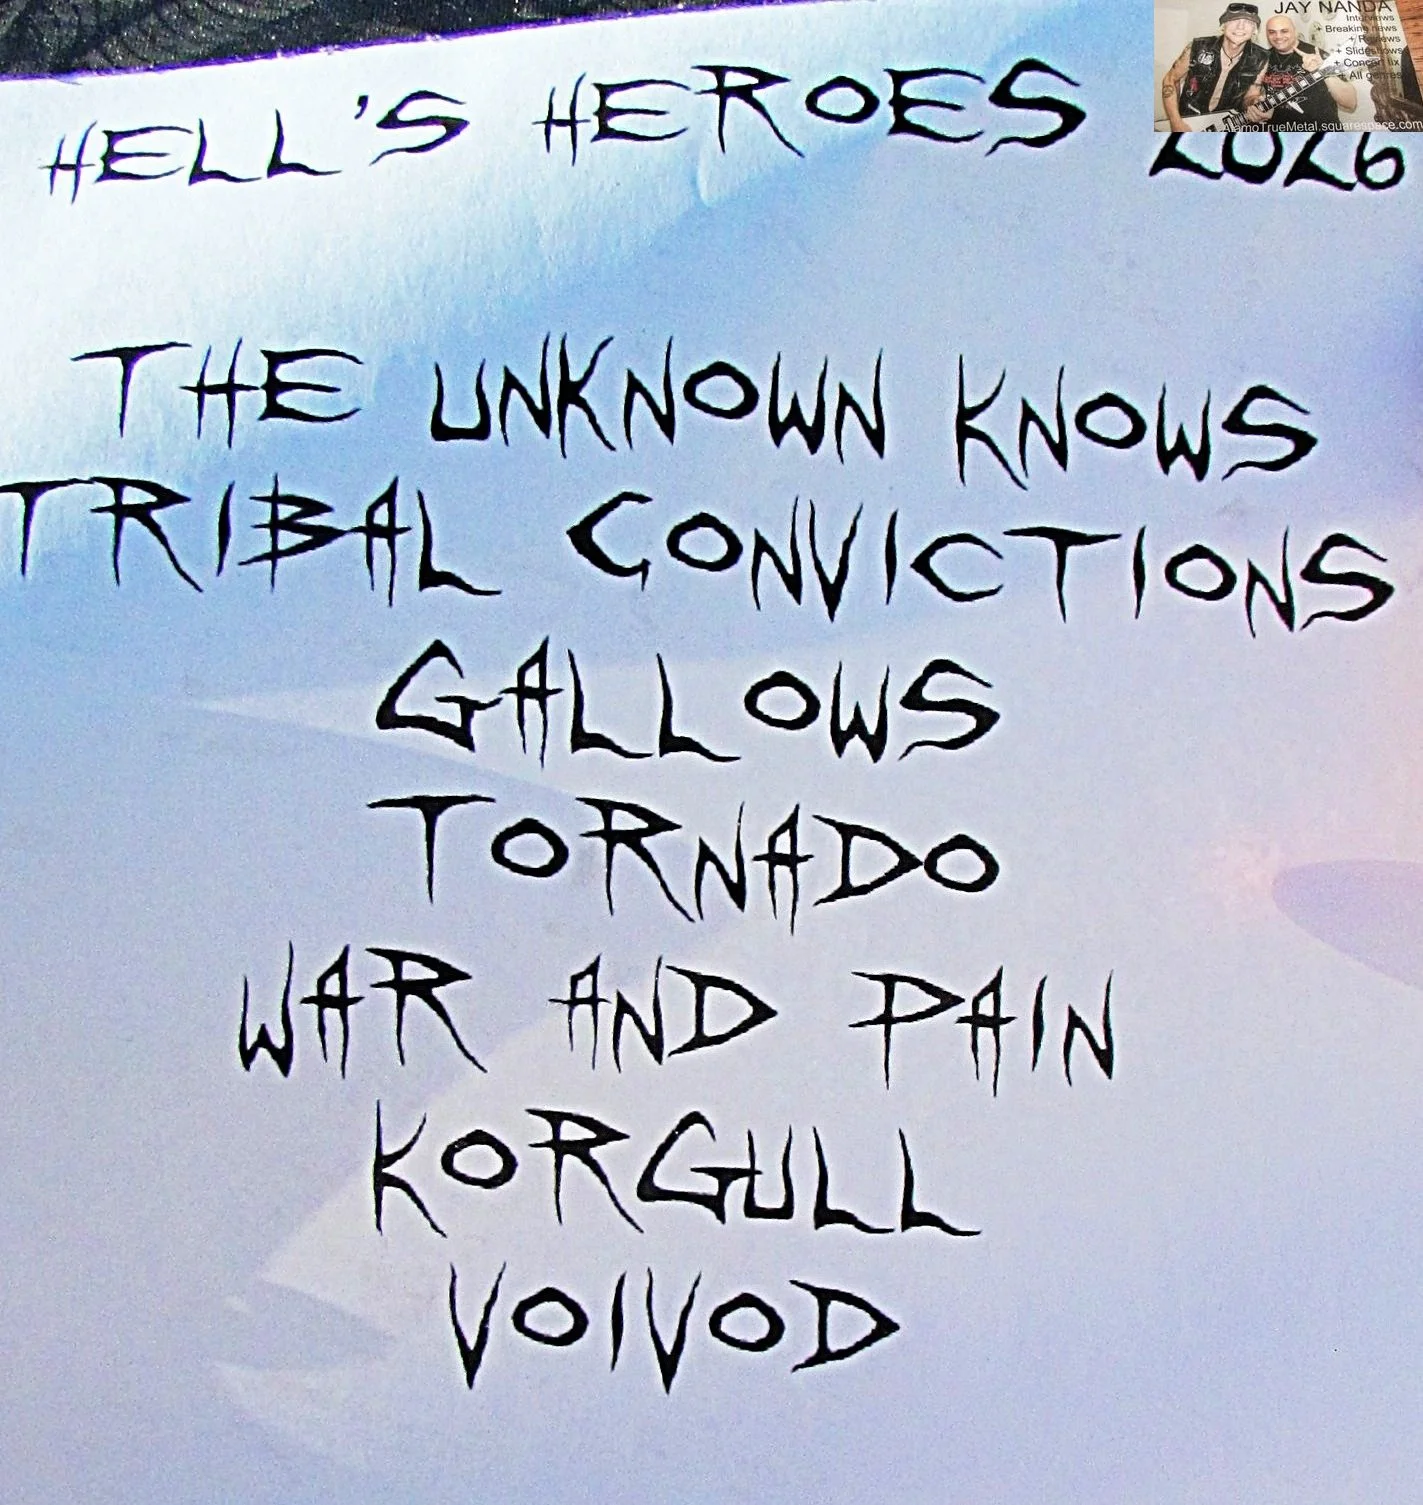 JAY NANDA
Interviews
+ Breaking news
+ Reviews
+ Slideshows
+ Concert fix
+ All genres
AlamoTrueMetal.squarespace.com
HELL'S HEROES 2026
THE UNKNOWN KNOWS
TRIBAL CONVICTIONS
GALLOWS
TORNADO
WAR AND PAIN
KORGULL
VOIVOD